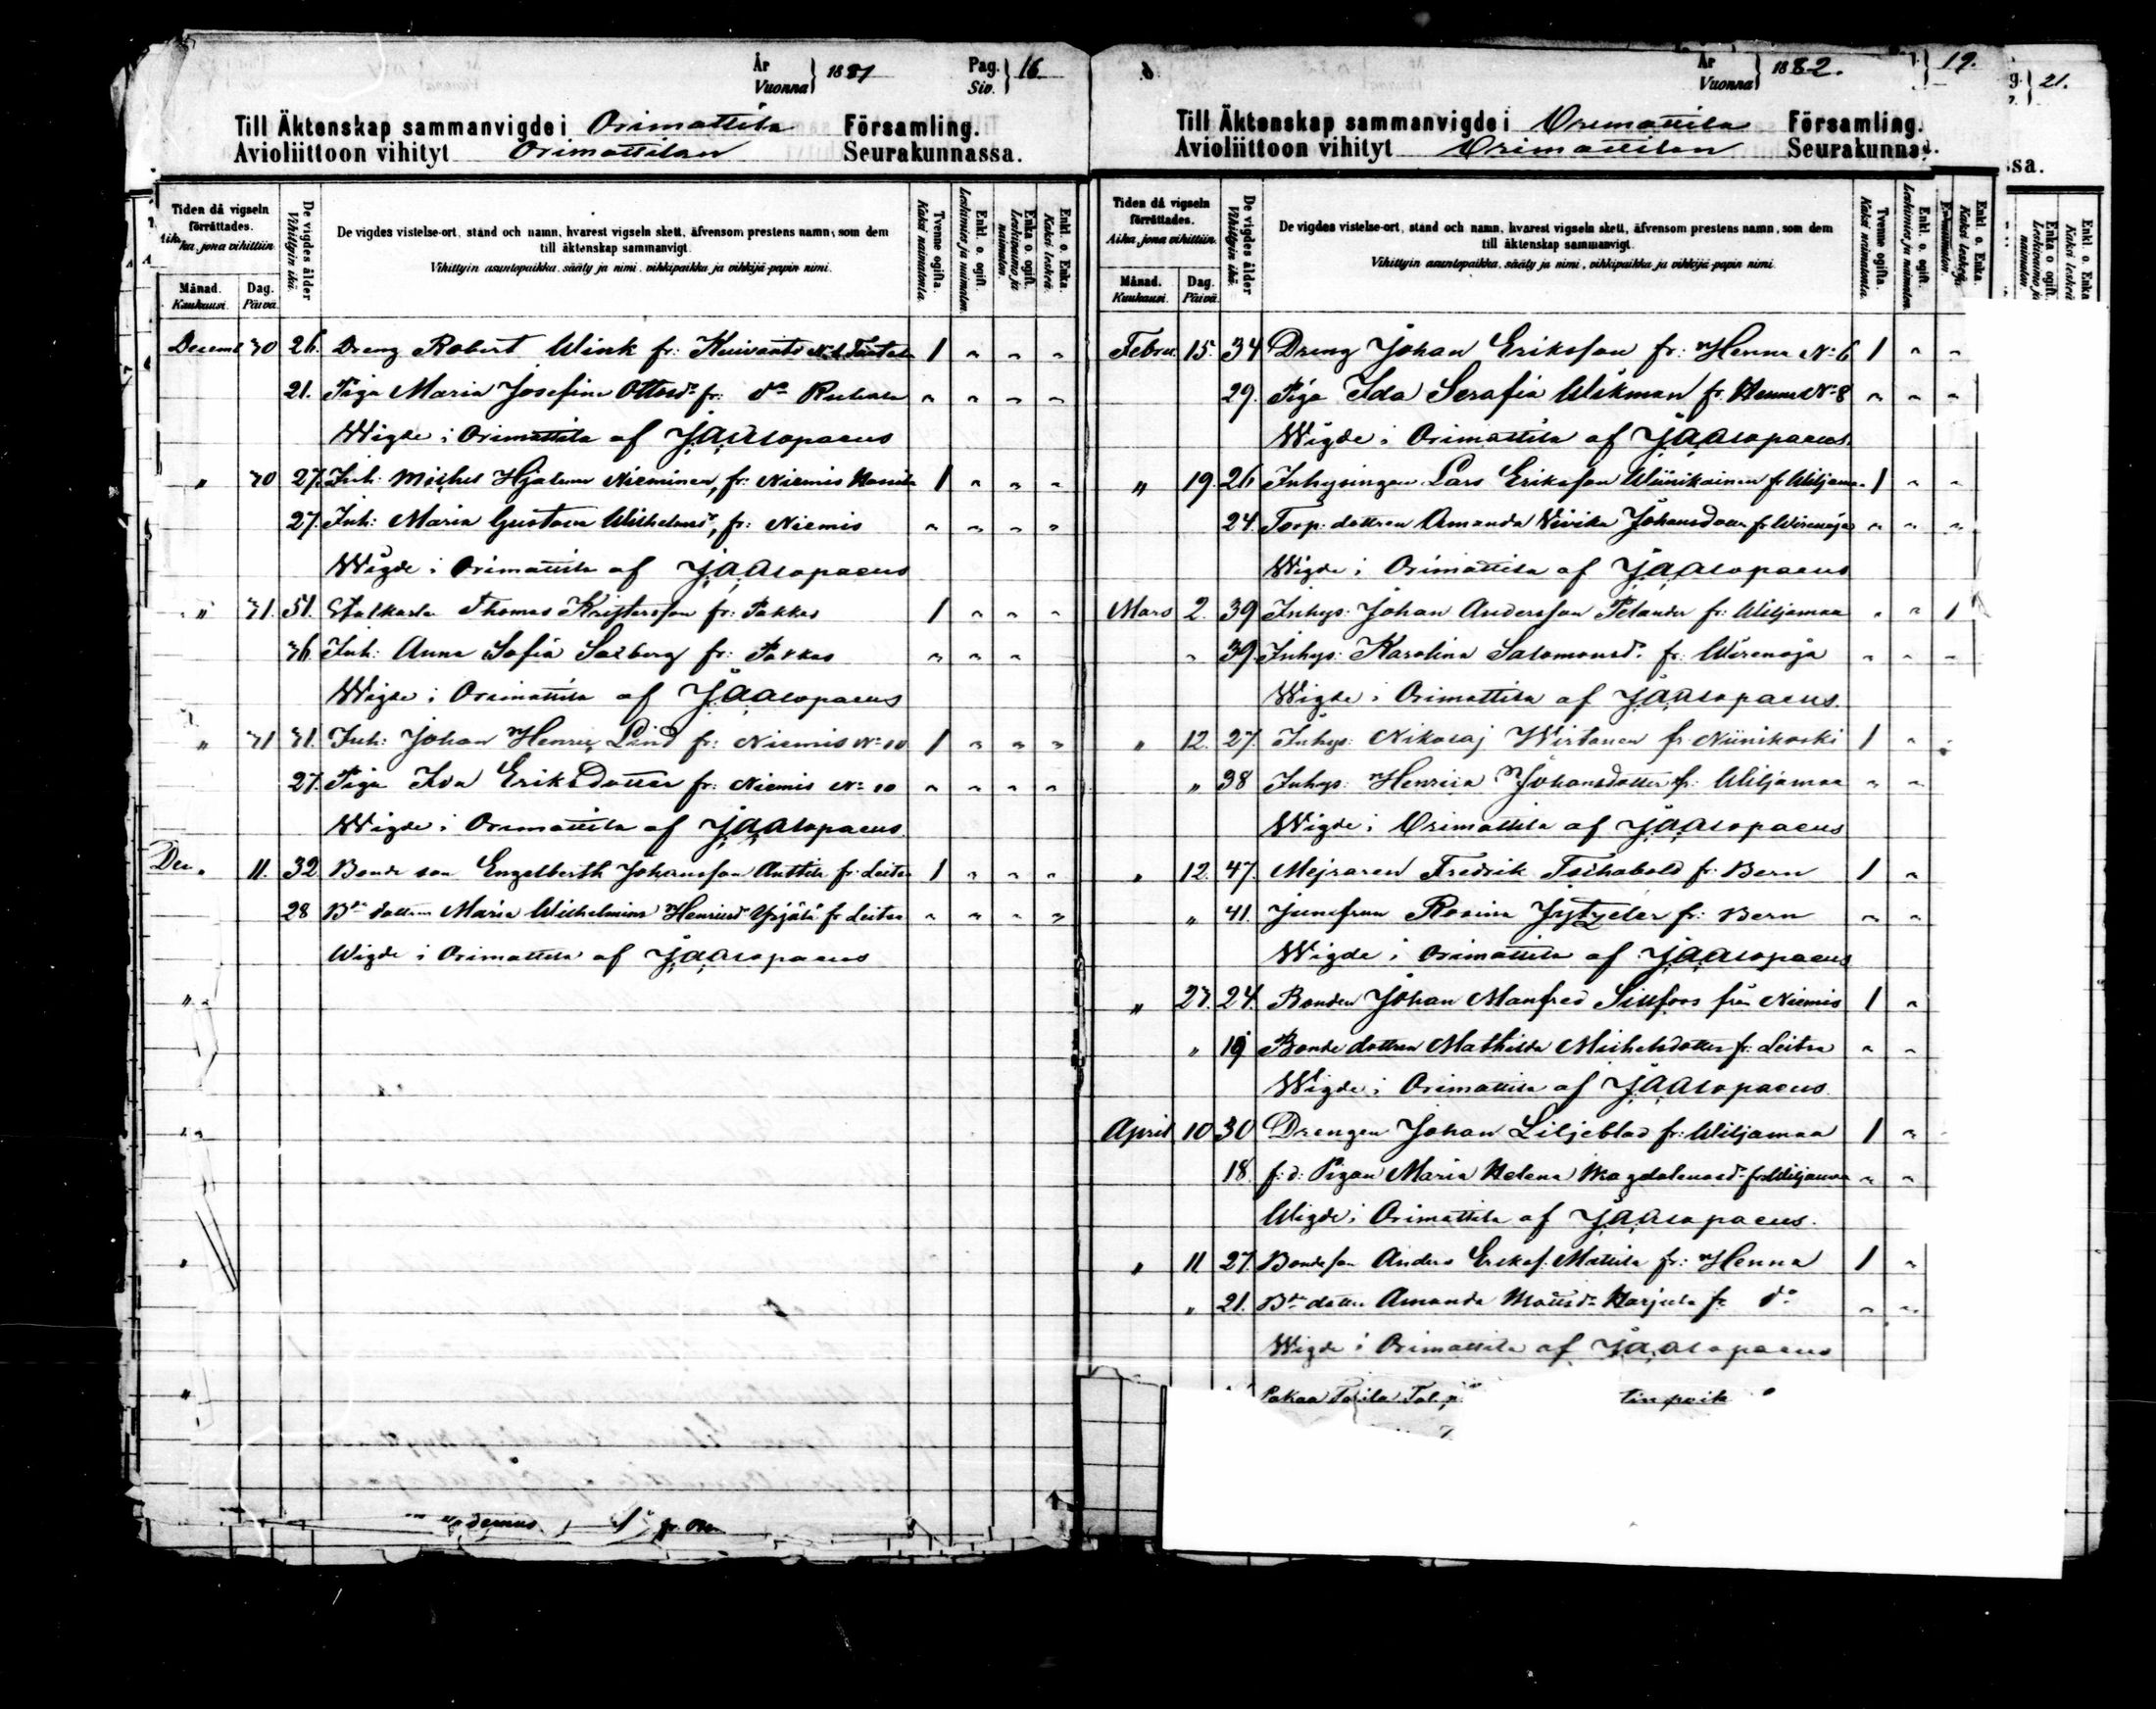 År
Vuonna } 1881
Pag.
Siv. } 16
Till Äktenskap sammanvigde i Orimattila Församling.
Avioliittoon vihityt Orimattilan Seurakunnassa.
Tiden då vigseln förrättades.
Aika, jona vihittiin
Månad.
Kuukausi.
Dag.
Päivä.
De vigdes ålder
Vihittyin ikä.
De vigdes vistelse-ort, stånd och namn, hvarest vigseln skett, äfvensom prestens namn, som dem
till äktenskap sammanvigt.
Vihittyin asuntopaikka, sääty ja nimi, vihkipaikka ja vihkijä-papin nimi.
Tvenne ogifta.
Kaksi naimatonta.
Enkl. o. ogift.
Leskimies ja naimaton.
Enka o. ogift.
Leskivaimo ja naimaton.
Enkl. o. Enka.
Kaksi leskeä.
Decemb 30 26. Dreng Robert Wink fr: Kuivanto 1 " " "
21. Piga Maria Josefina Ottosd:r fr: d:o " " " "
Wigde i Orimattila af J.A.A.Lopaeus
" 30 27. Inh: Michel Hjalmar Nieminen, fr: Niemis 1 " " "
27. Inh: Maria Gustava Wilhelmsd:r, fr: Niemis " " " "
Wigde i Orimattila af J.A.A.Lopaeus
" 31. 51. Thomas Kristersson fr: Pakkas 1 " " "
36. Inh: Anna Sofia fr: Pakkas " " "
Wigde i Orimattila af J.A.A.Lopaeus
" 31 31. Inh: Johan Henrik Lind fr: Niemis N:o 10 1 " " "
27. Piga Eva Eriksdotter fr: Niemis N:o 10 " " " "
Wigde i Orimattila af J.A.A.Lopaeus
Dec. 11. 32 Bonde son Engelberth Johansson Anttila fr: Leitsa 1 " " "
28 B:de dottern Maria Wilhelmina Henriksd:r Yrjälä fr: Leitsa " " " "
Wigde i Orimattila af J.A.A.Lopaeus
År
Vuonna } 1882.
19.
Till Äktenskap sammanvigde i Orimattila Församling.
Avioliittoon vihityt Orimattilan
Tiden då vigseln förrättades.
Aika, jona vihittiin.
Månad.
Kuukausi.
Dag.
Päivä.
De vigdes ålder
Vihittyin ikä.
De vigdes vistelse-ort, stånd och namn, hvarest vigseln skett, äfvensom prestens namn, som dem
till äktenskap sammanvigt.
Vihittyin asuntopaikka, sääty ja nimi, vihkipaikka ja vihkijä-papin nimi.
Tvenne ogifta.
Kaksi naimatonta.
Enkl. o. ogift.
Leskimies ja naimaton.
Enkl. o. Enka.
Kaksi leskeä.
Febru. 15. 34 Dreng Johan Eriksson fr: Henna N:o 6 1 " "
29. Piga Ida Serafia Wikman fr. Henna N:o 8 " " "
Wigde i Orimattila af J.A.A.Lopaeus.
" 19. 26 Inhysingen Lars Eriksson Wiinikainen fr Wiljamaa 1 " "
24. Torp: dottren Amanda Wivika Johansdotter fr Wirenoja " " "
Wigde i Orimattila af J.A.A.Lopaeus
Mars 2. 39 Inhys: Johan Andersson Pelander fr: Wiljamaa " " 1
" 39. Inhys: Karolina Salomonsd:r fr: Wirenoja " " "
Wigde i Orimattila af J.A.A.Lopaeus.
" 12. 27. Inhys: Nikolaj Wirtanen fr Niinikoski 1 "
" 38 Inhys: Henrica Johansdotter fr: Wiljamaa " "
Wigde i Orimattila af J.A.A.Lopaeus
" 12. 47. Mejraren Fredrik Tschabold fr: Bern 1 "
" 41. Jungfrun Rosina fr: Bern " "
Wigde i Orimattila af J.A.A.Lopaeus
" 23. 24. Bonden Johan Manfred Sillfors från Niemis 1 "
" 19 Bonde dottren Mathilda Michelsdotter fr: Leitsa " "
Wigde i Orimattila af J.A.A.Lopaeus.
April 10 30 Drengen Johan Liljeblad fr: Wiljamaa 1 "
18. f: d: Pigan Maria Helena Magdalenasd:r fr. Wiljamaa " "
Wigde i Orimattila af J.A.A.Lopaeus.
" 11 27. Bondeson Anders Eriks. Mattila fr: Henna 1 "
" 21. B:de dotter Amanda Mattsd:r Harjula fr d:o " "
Wigde i Orimattila af J.A.A.Lopaeus
21.
ssa.
Enka o. ogift.
Leskivaimo ja naimaton
Enkl. o. Enka
Kaksi leskeä